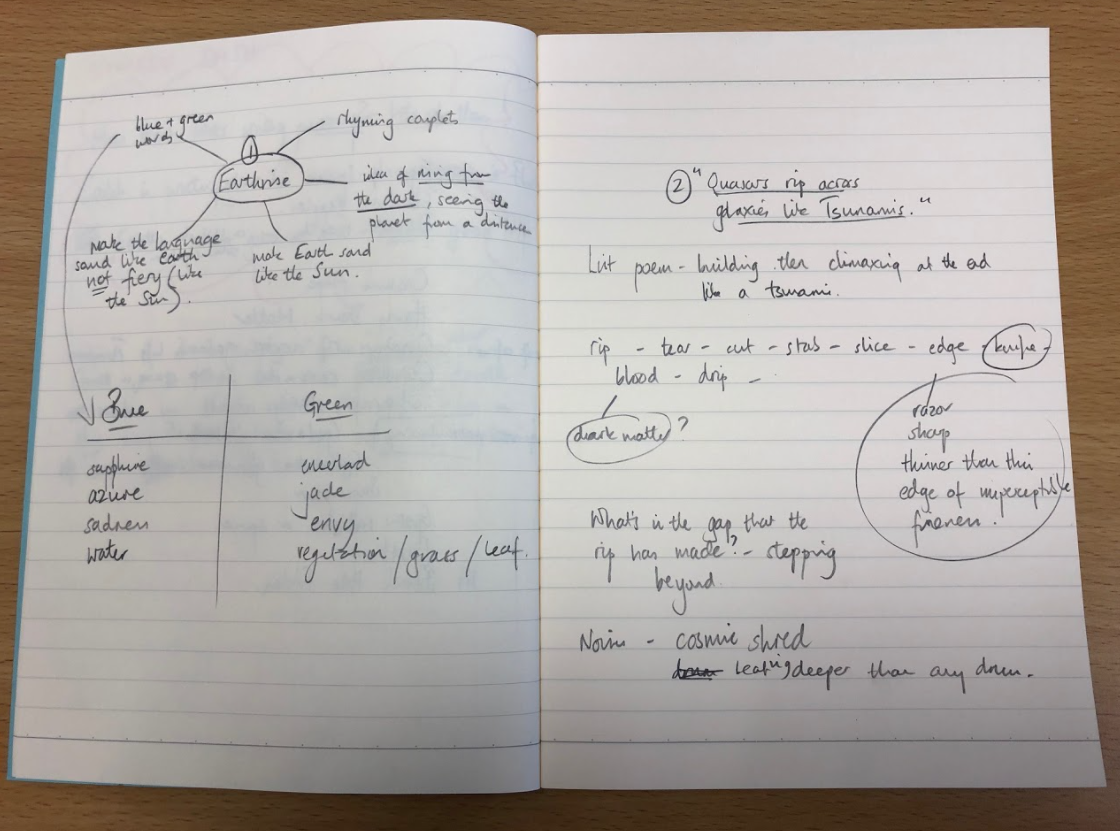 blue + green
words
rhyming couplets
1
Earthrise
idea of rising from
the dark, seeing the
planet from a distance
make the language
sound like earth
not fiery (like
the Sun).
make Earth sound
like the Sun.
Blue
Green
sapphire
emerlad
azure
jade
sadness
envy
water
vegetation / grass / leaf.
2 "Quasars rip across
galaxies like Tsunamis."
List poem - building then climaxing at the end
like a tsunami.
rip - tear - cut - stab - slice - edge - knife -
blood - drip -
dark matter?
razor
sharp
thinner than thin
edge of imperceptible
fineness.
What's in the gap that the
rip has made? - stepping
beyond.
Noise - cosmic shred
deeper than any drum.